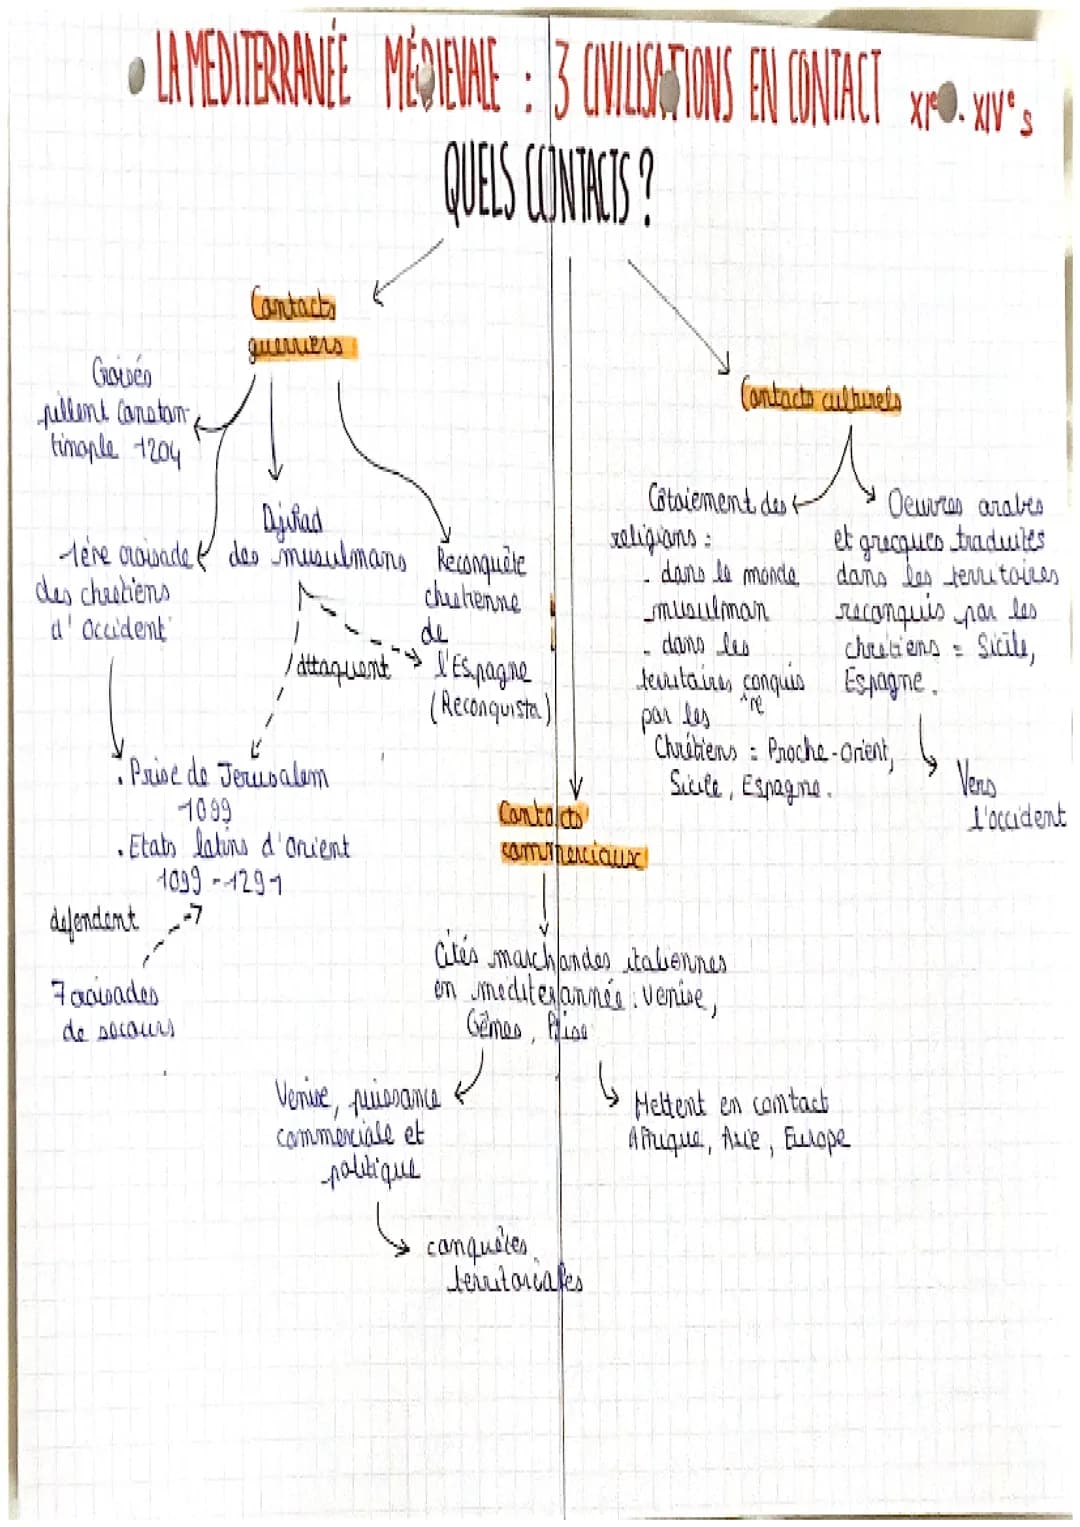 • LA MEDITERRANÉE MÉDIEVALE : 3 CIVILISATIONS EN CONTACT XIe - XIVe s
QUELS CONTACTS ?
Contacts
guerriers
Croisés
pillent Constan-
tinople 1204
1ère croisade
des chretiens
d'Occident
Djihad
des musulmans
Reconquête
chretienne
de
l'Espagne
(Reconquista)
attaquent
. Prise de Jerusalem
1099
. Etats latins d'Orient
1099 - 1291
defendent
7 croisades
de secours
Contacts culturels
Côtoiement des
religions :
- dans le monde
musulman
- dans les
territoires conquis
re
par les
Chrétiens = Proche-Orient,
Sicile, Espagne.
Oeuvres arabes
et grecques traduites
dans les territoires
reconquis par les
chretiens = Sicile,
Espagne.
Vers
l'occident
Contacts
commerciaux
Cités marchandes italiennes
en mediterannée : Venise,
Gênes, Pise
Venise, puissance
commerciale et
politique
conquêtes
territoriales
Mettent en contact
Afrique, Asie, Europe